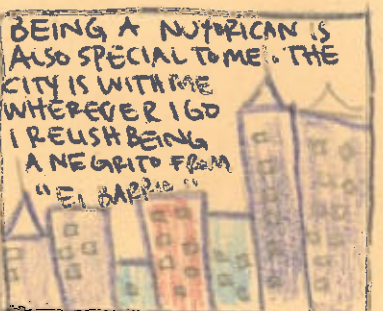 BEING A NUYORICAN IS
ALSO SPECIAL TO ME. THE
CITY IS WITH ME
WHEREVER I GO
I RELISH BEING
A NEGRITO FROM
"El BARRIO"